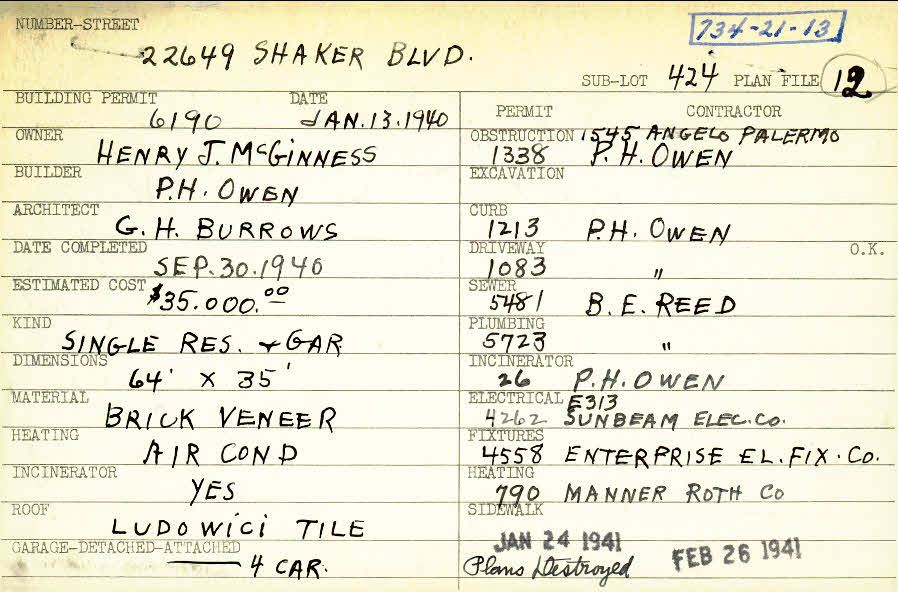 NUMBER-STREET
734-21-13
22649 SHAKER BLVD.
SUB-LOT 424 PLAN FILE 12
BUILDING PERMIT DATE
6190 JAN.13.1940
OWNER
HENRY J. McGINNESS
BUILDER
P.H. OWEN
ARCHITECT
G.H. BURROWS
DATE COMPLETED
SEP.30.1940
ESTIMATED COST
$35.000.00
KIND
SINGLE RES. & GAR
DIMENSIONS
64' X 35'
MATERIAL
BRICK VENEER
HEATING
AIR COND
INCINERATOR
YES
ROOF
LUDOWICI TILE
GARAGE-DETACHED-ATTACHED
4 CAR.
PERMIT CONTRACTOR
OBSTRUCTION 1545 ANGELO PALERMO
1338 P.H. OWEN
EXCAVATION
CURB
1213 P.H. OWEN
DRIVEWAY O.K.
1083 "
SEWER
5481 B.E. REED
PLUMBING
5723 "
INCINERATOR
26 P.H. OWEN
ELECTRICAL E313
4262 SUNBEAM ELEC.CO.
FIXTURES
4558 ENTERPRISE EL.FIX.CO.
HEATING
790 MANNER ROTH CO
SIDEWALK
JAN 24 1941
FEB 26 1941
Plans Destroyed